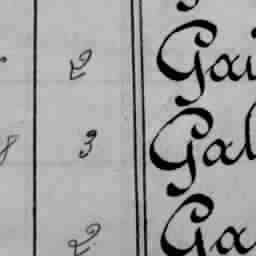 2 Gai
8 3 Gal
2 Ga